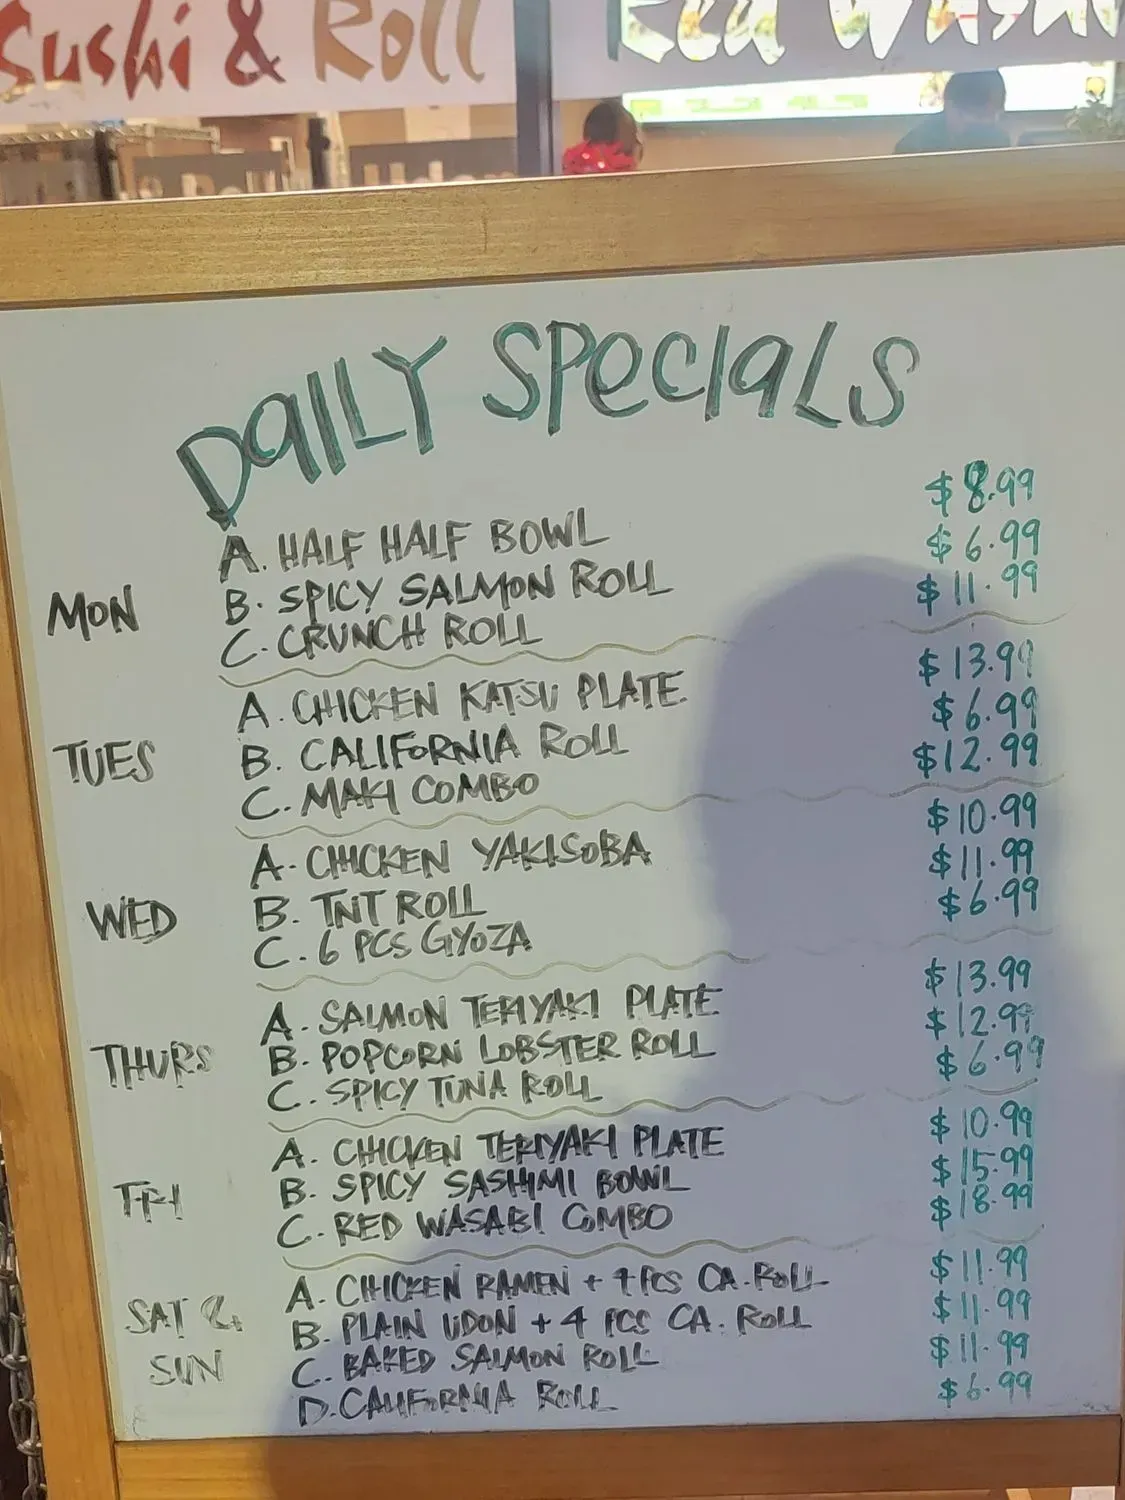 Sushi & Roll Red Wasabi
DAILY SPECIALS
MON
A. HALF HALF BOWL $8.99
B. SPICY SALMON ROLL $6.99
C. CRUNCH ROLL $11.99
TUES
A. CHICKEN KATSU PLATE $13.99
B. CALIFORNIA ROLL $6.99
C. MAKI COMBO $12.99
WED
A. CHICKEN YAKISOBA $10.99
B. TNT ROLL $11.99
C. 6 PCS GYOZA $6.99
THURS
A. SALMON TERIYAKI PLATE $13.99
B. POPCORN LOBSTER ROLL $12.99
C. SPICY TUNA ROLL $6.99
FRI
A. CHICKEN TERIYAKI PLATE $10.99
B. SPICY SASHIMI BOWL $15.99
C. RED WASABI COMBO $18.99
SAT &
SUN
A. CHICKEN RAMEN + 4 PCS CA. ROLL $11.99
B. PLAIN UDON + 4 PCS CA. ROLL $11.99
C. BAKED SALMON ROLL $11.99
D. CALIFORNIA ROLL $6.99